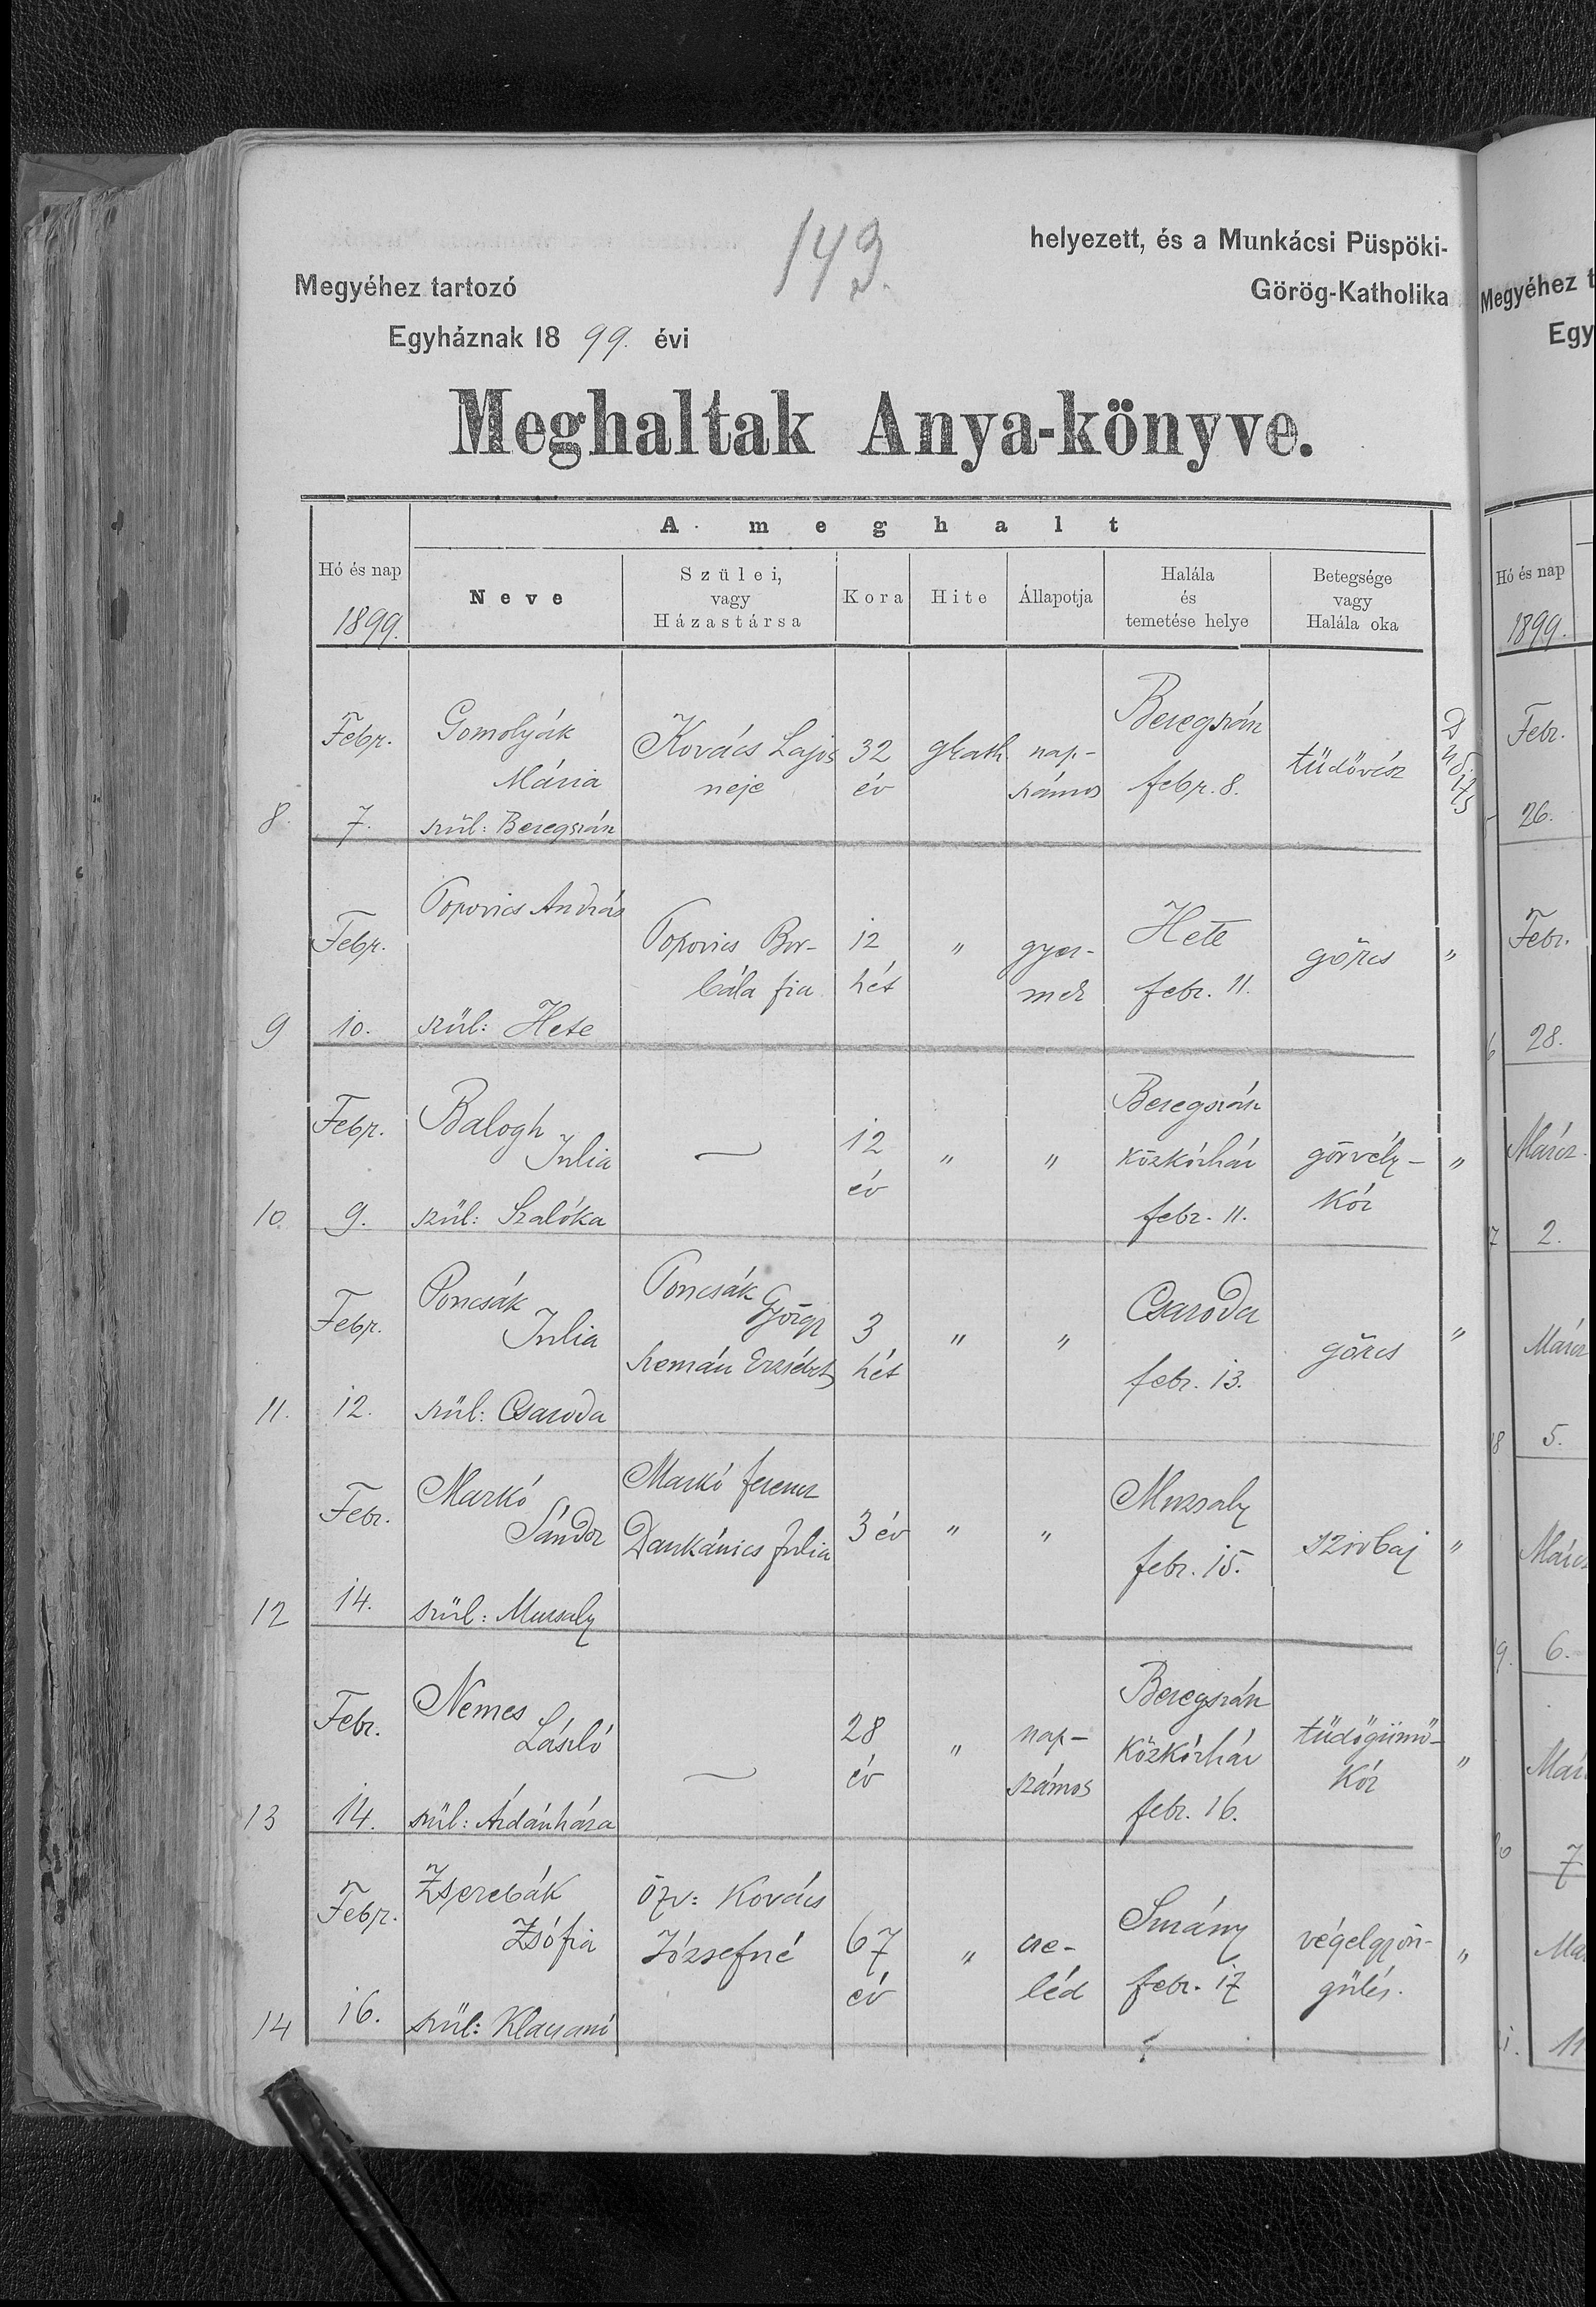 143.
helyezett, és a Munkácsi Püspöki-
Megyéhez tartozó Görög-Katholika
Egyháznak 18 99. évi
Meghaltak Anya-könyve.
A meghalt
Hó és nap
1899.
Neve
Szülei,
vagy
Házastársa
Kora
Hite
Állapotja
Halála
és
temetése helye
Betegsége
vagy
Halála oka
8. Febr. 7.
Gomolyák
Mária
szül: Beregszász
Kovács Lajos
neje
32
év
gkath.
nap-
számos
Beregszász
febr. 8.
tüdővész
9 Febr. 10.
Popovics András
szül: Hete
Popovics Bor-
bála fia
12
hét
"
gyer-
mek
Hete
febr. 11.
görcs
"
10. Febr. 9.
Balogh
Julia
szül: Szalóka
—
12
év
"
"
Beregszász
közkórház
febr. 11.
görvély-
kór
"
11. Febr. 12.
Poncsák
Julia
szül: Csaroda
Poncsák
György
Erzsébet
3
hét
"
"
Csaroda
febr. 13.
görcs
"
12 Febr. 14.
Markó
Sándor
szül: Muzsaly
Markó Ferencz
Dankánics Julia
3 év
"
"
Muzsaly
febr. 15.
szivbaj
"
13 Febr. 14.
Nemes
László
szül: Árdánháza
—
28
év
"
nap-
számos
Beregszász
közkórház
febr. 16.
tüdőgümő-
kór
"
14 Febr. 16.
Zserebák
Zsófia
szül: Klacsanó
özv: Kovács
Józsefné
67
év
"
cse-
léd
Surány
febr. 17
végelgyön-
gülés.
"
Megyéhez t
Egy
Hó és nap
1899.
Febr.
26.
Febr.
28.
Márcz.
2.
Márcz
5.
Márcz
6.
Már
7
Ma
11